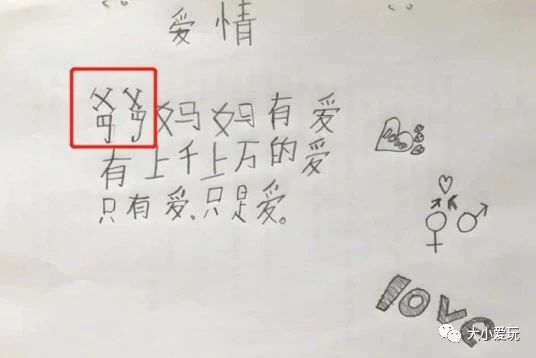 爱情
爸爸妈妈有爱
有上千上万的爱
只有爱、只是爱。
LOVe
大小爱玩